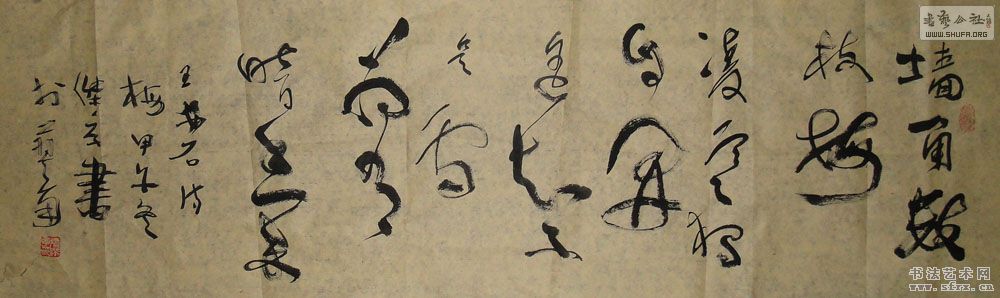 墙角数
枝梅
凌寒独
自开
遥知不
是雪
为有
暗香来
王安石诗
梅甲午冬
书
书艺公社
WWW.SHUFA.ORG
书法艺术网
www.sfzx.cn